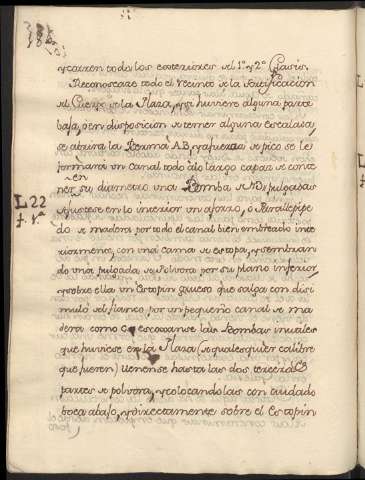 y corren todo los exteriores del 1º y 2º Glasis.
Reconoscase todo el recinto de la fortificacion
del Cuerpo de la Plaza, y si huviere alguna parte
baja, ò en disposicion de temer alguna escalada,
se abrira la Berma A.B, y a fuerza de pico se le
formará un canal todo a lo largo capaz de conte
ner en su diametro una Bomba de pulgadas
L22
f. 1ª
Ajustese en lo interior un aforro, o Paralelepipe
do de madera por todo el canal bien embreado inte
riormente, con una cama de estopa, y sembran
do una pulgada de Polvora por su plano inferior,
y sobre ella un Estopin grueso que salga con disi
mulo del flanco por un pequeño canal de ma
dera como escojanse las Bombas inutiles
que huviese en la Plaza (de qualesquier calibre
que fueren) llenense hasta las dos terceras
partes de polvora, y colocandolas con cuidado
boca abajo, y directamente sobre el Estopin